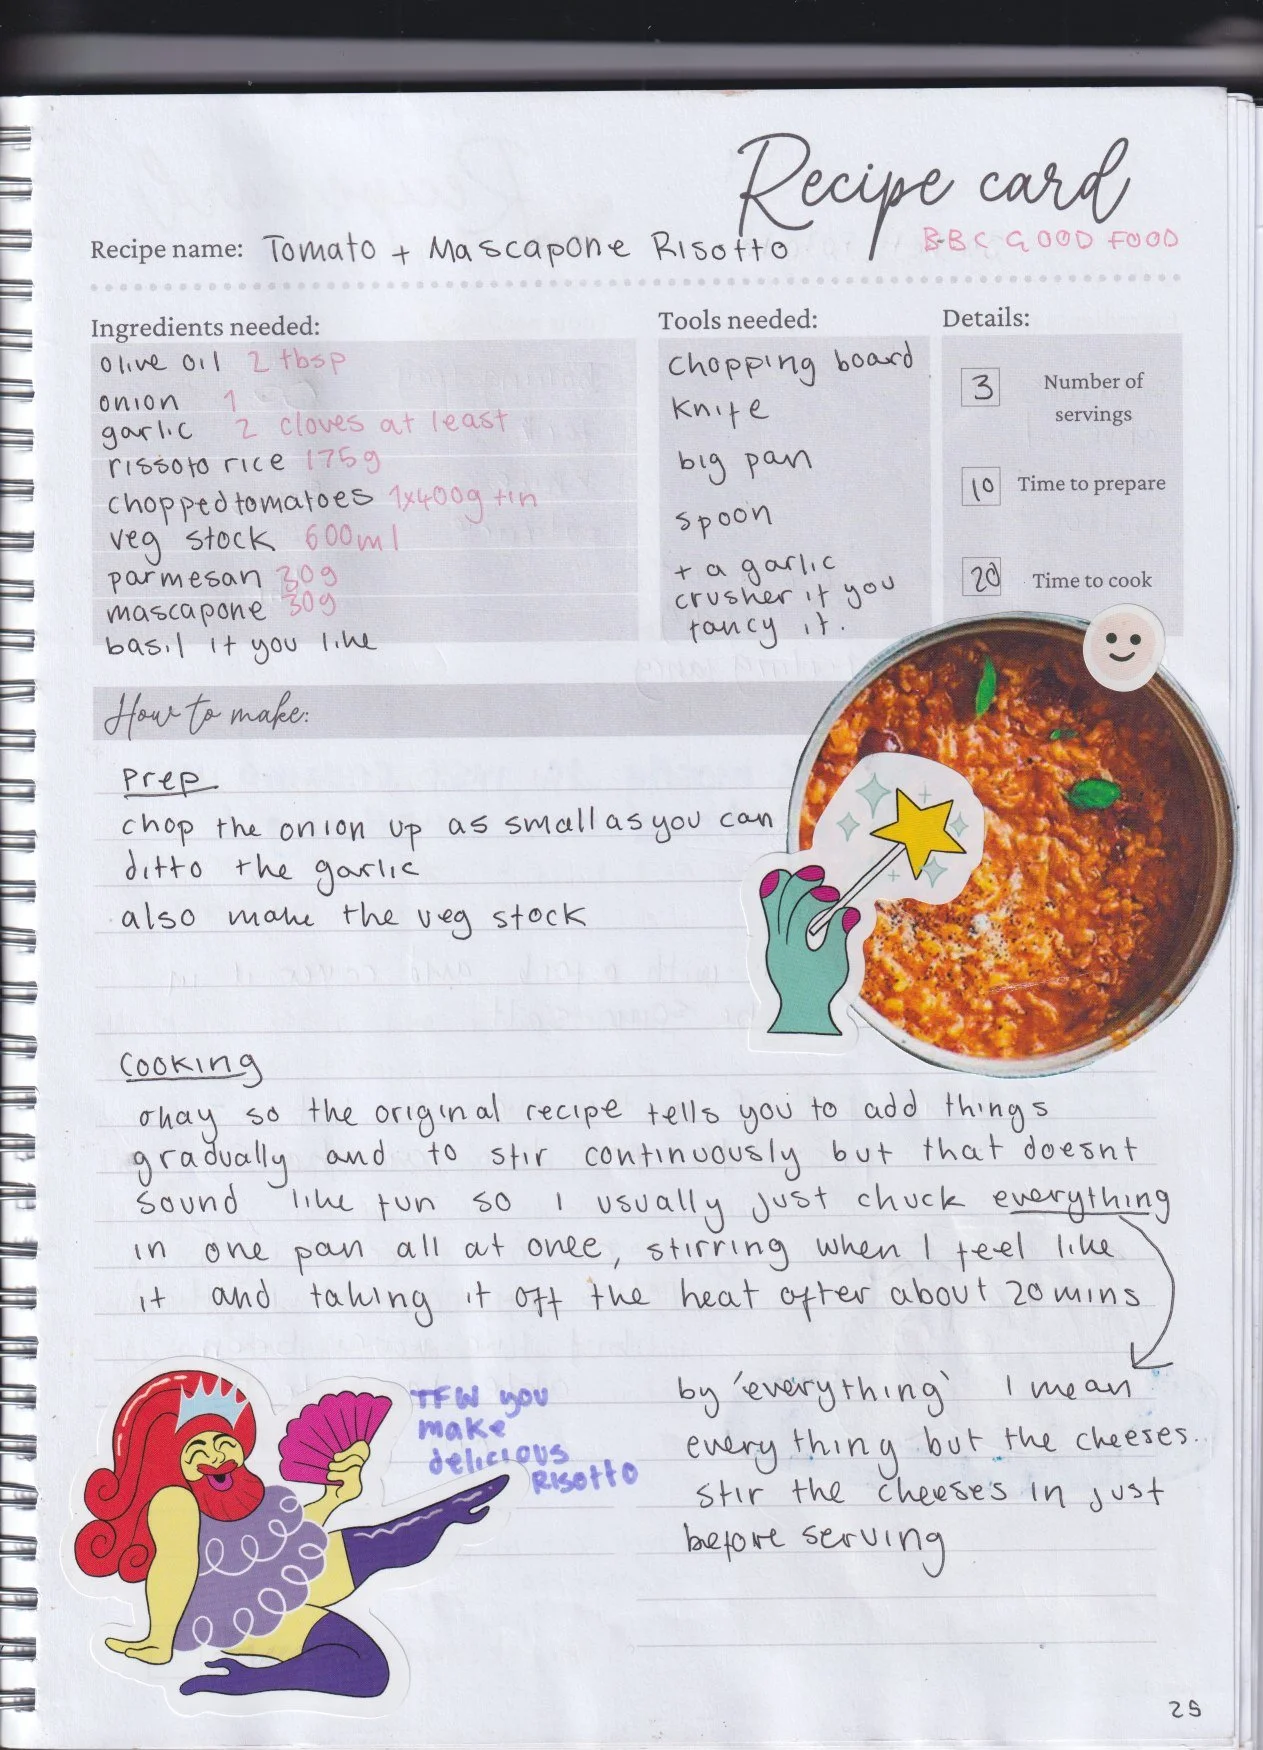 Recipe card
Recipe name: Tomato + Mascapone Risotto
BBC GOOD FOOD
Ingredients needed:
olive oil 2 tbsp
onion 1
garlic 2 cloves at least
rissoto rice 175g
chopped tomatoes 1x400g tin
veg stock 600ml
parmesan 30g
mascapone 30g
basil if you like
Tools needed:
chopping board
knife
big pan
spoon
+ a garlic
crusher if you
fancy it.
Details:
3 Number of
servings
10 Time to prepare
20 Time to cook
How to make:
Prep
chop the onion up as small as you can
ditto the garlic
also make the veg stock
Cooking
okay so the original recipe tells you to add things
gradually and to stir continuously but that doesnt
sound like fun so I usually just chuck everything
in one pan all at once, stirring when I feel like
it and taking it off the heat after about 20 mins
by 'everything' I mean
everything but the cheeses.
stir the cheeses in just
before serving
TFW you
make
delicious
RISOTTO
25